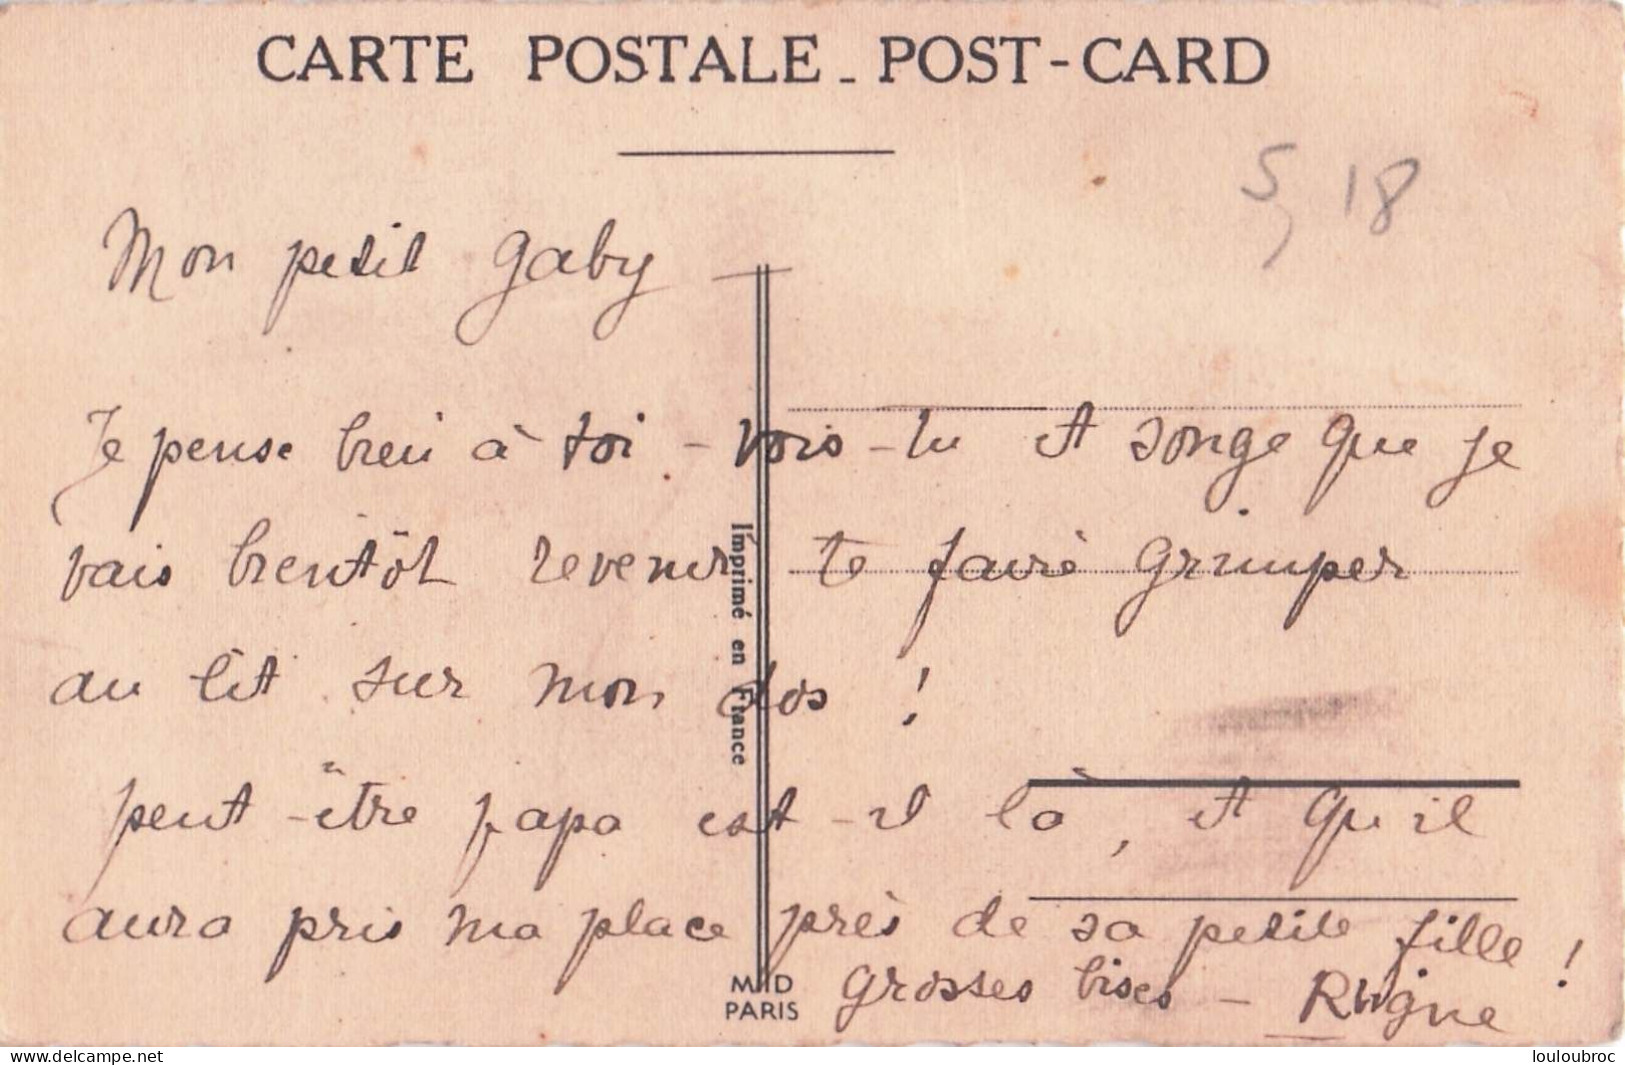 CARTE POSTALE - POST-CARD
5, 18
Mon petit Gaby —
Je pense bien à toi - vois-tu et songe que je
vais bientôt revenir te faire grimper
au lit sur mon dos !
peut-être papa est-il là, et qu'il
aura pris ma place près de sa petite fille !
grosses bises —
Imprimé en France
M D
PARIS
delcampe.net
louloubroc